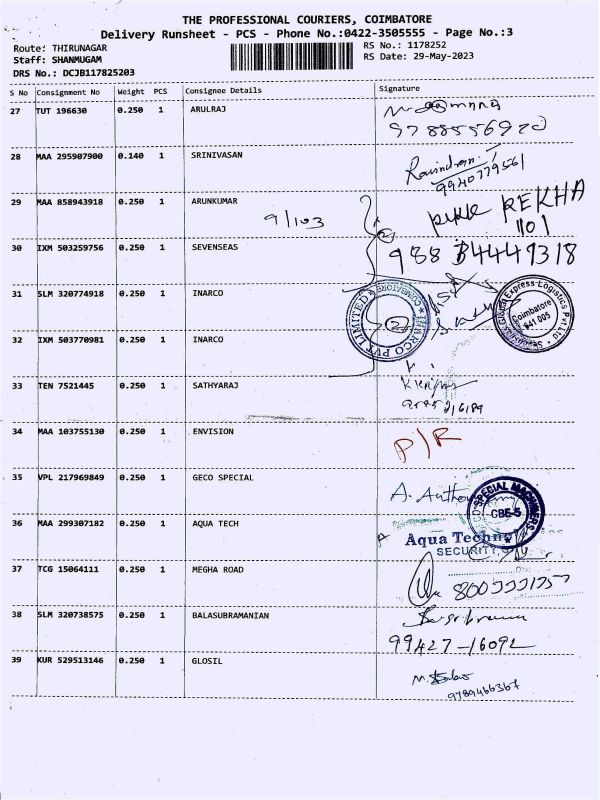 THE PROFESSIONAL COURIERS, COIMBATORE
Delivery Runsheet - PCS - Phone No.:0422-3505555 - Page No.:3
Route: THIRUNAGAR
RS No.: 1178252
Staff: SHANMUGAM
RS Date: 29-May-2023
DRS No.: DCJB117825203
S No Consignment No Weight PCS Consignee Details Signature
27 TUT 196630 0.250 1 ARULRAJ
9788556920
28 MAA 295907900 0.140 1 SRINIVASAN
Ravindran. T
9940779561
29 MAA 858943918 0.250 1 ARUNKUMAR
9/103
REKHA
1101
30 IXM 503259756 0.250 1 SEVENSEAS
988 34449318
31 SLM 320774918 0.250 1 INARCO
INARCO PVT LIMITED COIMBATORE
2
Express Logistics Pvt Ltd
Coimbatore
641 005
32 IXM 503770981 0.250 1 INARCO
33 TEN 7521445 0.250 1 SATHYARAJ
34 MAA 103755130 0.250 1 ENVISION
P/R
35 VPL 217969849 0.250 1 GECO SPECIAL
A. Anthony
SPECIAL MACHINERS
CBE-5
36 MAA 299307182 0.250 1 AQUA TECH
Aqua Techno
SECURITY
37 TCG 15064111 0.250 1 MEGHA ROAD
38 SLM 320738575 0.250 1 BALASUBRAMANIAN
99427-16092
39 KUR 529513146 0.250 1 GLOSIL
9789466367